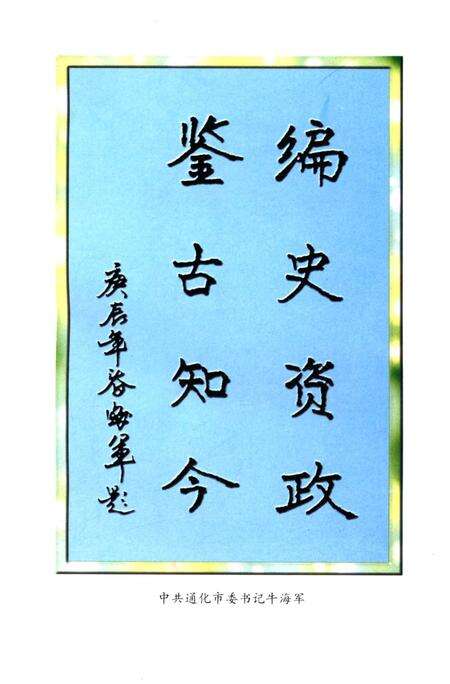 编史资政
鉴古知今
庚辰年春海军题
中共通化市委书记牛海军